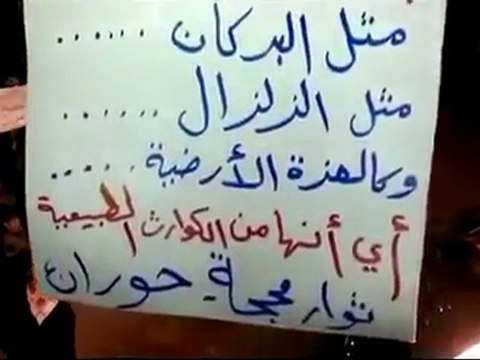 مثل البركان ......
مثل الزلزال ......
وكالهزة الأرضية ......
أي أنها من الكوارث الطبيعية
ثوار محجة حوران